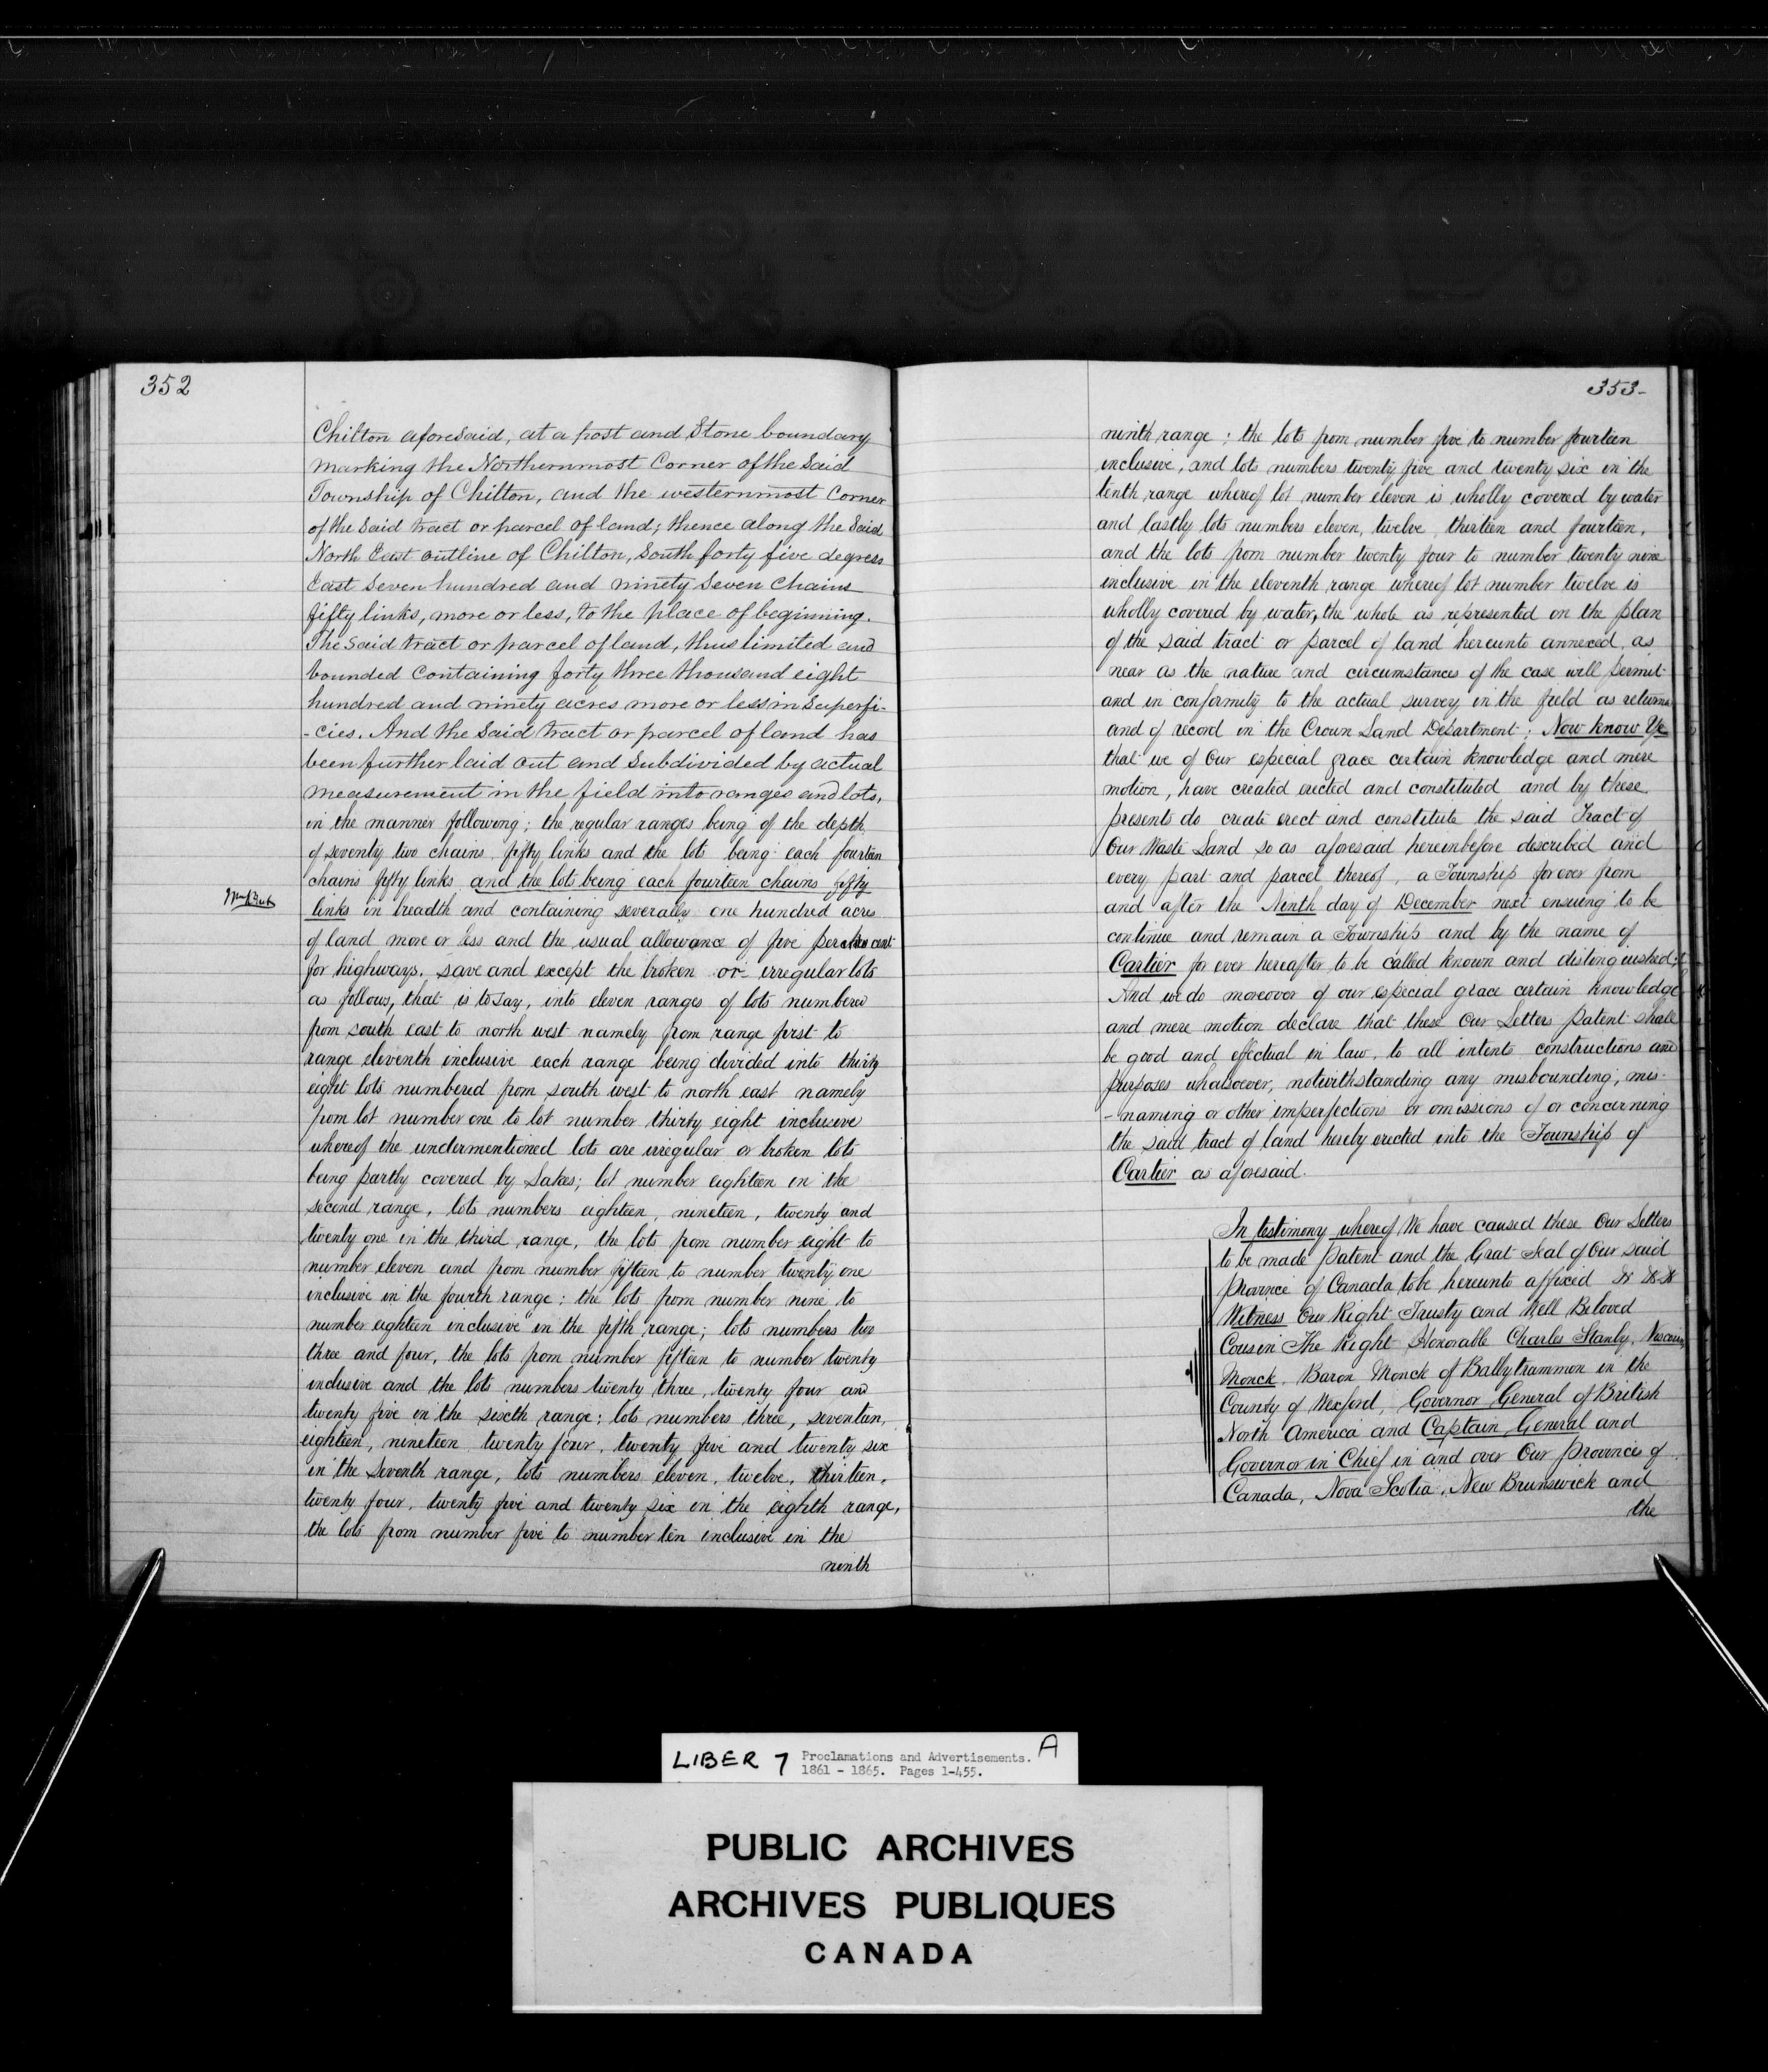 352
Chilton aforesaid, at a post and Stone boundary
marking the Northernmost Corner of the Said
Township of Chilton, and the westernmost Corner
of the Said tract or parcel of land; thence along the Said
North East outline of Chilton, South forty five degrees
East Seven hundred and ninety Seven Chains
fifty links, more or less, to the place of beginning.
The Said tract or parcel of land, thus limited and
bounded Containing forty three thousand eight
hundred and ninety acres more or less in Superfi-
-cies. And the Said tract or parcel of land has
been further laid out and Subdivided by actual
measurement in the field into ranges and lots,
in the manner following; the regular ranges being of the depth
of seventy two chains fifty links and the lots being each fourteen
chains fifty links and the lots being each fourteen chains fifty
links in breadth and containing severally one hundred acres
of land more or less and the usual allowance of five per cent
for highways. save and except the broken or irregular lots
as follows, that is to say, into eleven ranges of lots numbered
from south east to north west namely from range first to
range eleventh inclusive each range being divided into thirty
eight lots numbered from south west to north east namely
from lot number one to lot number thirty eight inclusive
whereof the undermentioned lots are irregular or broken lots
being partly covered by Lakes; lot number eighteen in the
second range, lots numbers eighteen, nineteen, twenty and
twenty one in the third range, the lots from number eight to
number eleven and from number fifteen to number twenty one
inclusive in the fourth range; the lots from number nine to
number eighteen inclusive in the fifth range; lots numbers two
three and four, the lots from number fifteen to number twenty
inclusive and the lots numbers twenty three, twenty four and
twenty five in the sixth range; lots numbers three, seventeen,
eighteen, nineteen twenty four, twenty five and twenty six
in the Seventh range, lots numbers eleven, twelve, thirteen,
twenty four, twenty five and twenty six in the eighth range,
the lots from number five to number ten inclusive in the
ninth
353-
ninth range; the lots from number five to number fourteen
inclusive, and lots numbers twenty five and twenty six in the
tenth range whereof lot number eleven is wholly covered by water
and lastly lots numbers eleven, twelve thirteen and fourteen,
and the lots from number twenty four to number twenty nine
inclusive in the eleventh range whereof lot number twelve is
wholly covered by water, the whole as represented on the plan
of the said tract or parcel of land hereunto annexed, as
near as the nature and circumstances of the case will permit
and in conformity to the actual survey in the field as returns
and of record in the Crown Land Department; Now Know Ye
that we of Our especial grace certain knowledge and mere
motion, have created erected and constituted and by these
presents do create erect and constitute the said Tract of
Our Waste Land so as aforesaid hereinbefore described and
every part and parcel thereof, a Township for ever from
and after the Ninth day of December next ensuing to be
continue and remain a Township and by the name of
Cartier for ever hereafter to be called known and distinguished;
And we do moreover of our especial grace certain knowledge
and mere motion declare that these Our Letters Patent shall
be good and effectual in law, to all intents constructions and
purposes whatsoever, notwithstanding any misbounding, mis-
-naming or other imperfections or omissions of or concerning
the said tract of land hereby erected into the Township of
Cartier as aforesaid.
In testimony whereof We have caused these Our Letters
to be made Patent and the Great Seal of Our said
Province of Canada to be hereunto affixed
Witness Our Right Trusty and Well Beloved
Cousin The Right Honorable Charles Stanly, Viscount
Monck, Baron Monck of Ballytrammon in the
County of Wexford, Governor General of British
North America and Captain General and
Governor in Chief in and over Our Provinces of
Canada, Nova Scotia, New Brunswick and
the
LIBER 7 Proclamations and Advertisements. A
1861 - 1865. Pages 1-455.
PUBLIC ARCHIVES
ARCHIVES PUBLIQUES
CANADA